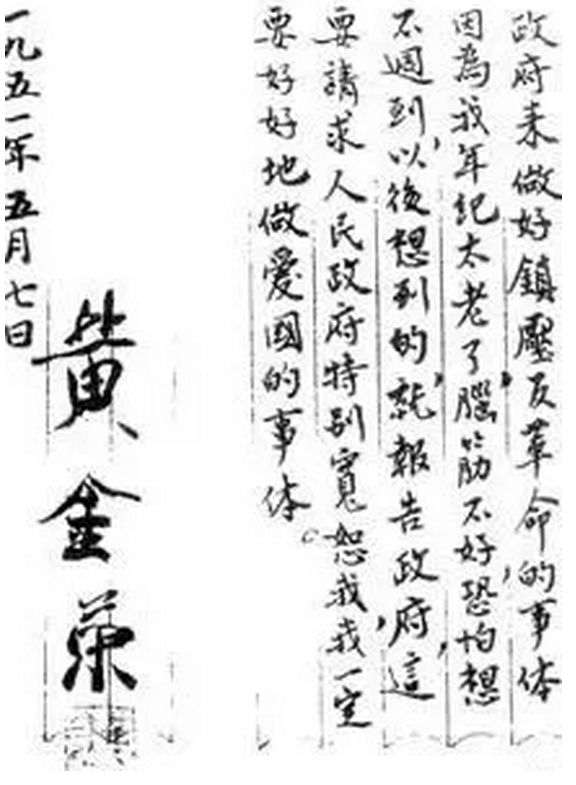 政府来做好鎮壓反革命的事体
因為我年紀太老了，腦筋不好，恐怕想
不週到，以後想到的，就報告政府，這
要請求人民政府特别寬恕我，我一定
要好好地做愛國的事体。
黄金荣
一九五一年五月七日